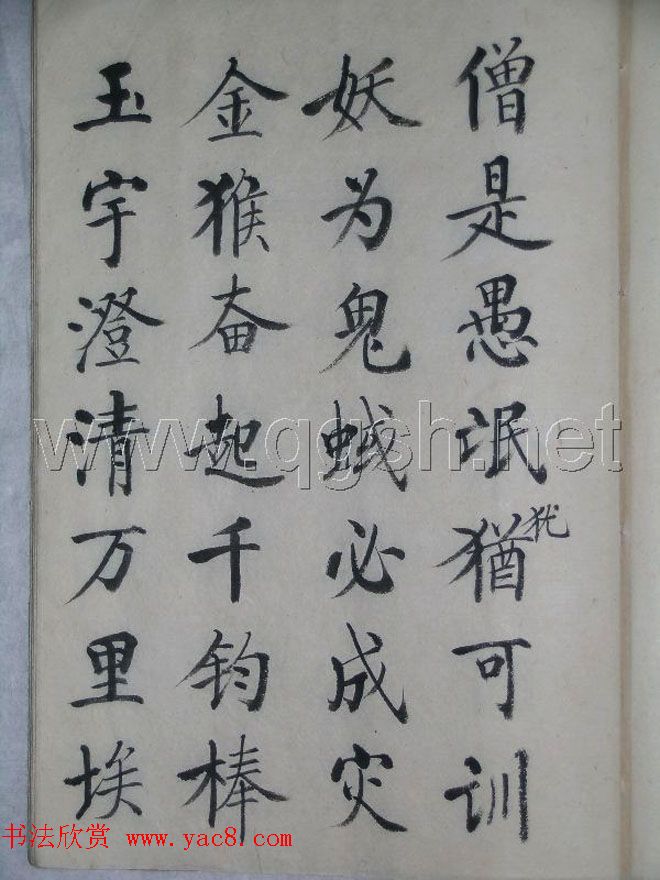 僧是愚氓猶可训
犹
妖为鬼蜮必成灾
金猴奋起千钧棒
玉宇澄清万里埃
www.qgsh.net
书法欣赏 www.yac8.com